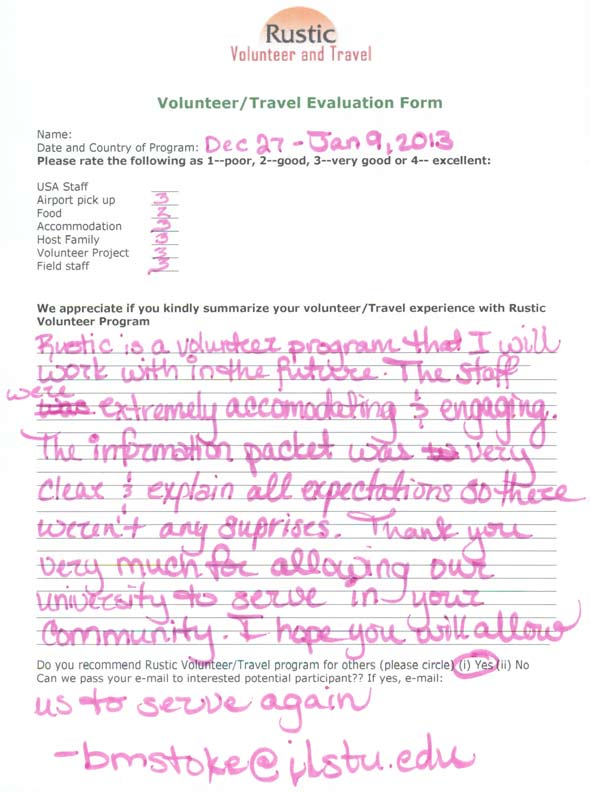 Rustic
Volunteer and Travel
Volunteer/Travel Evaluation Form
Name:
Date and Country of Program: Dec 27 - Jan 9, 2013
Please rate the following as 1--poor, 2--good, 3--very good or 4-- excellent:
USA Staff
Airport pick up 3
Food
Accommodation 3
Host Family 3
Volunteer Project 3
Field staff 3
We appreciate if you kindly summarize your volunteer/Travel experience with Rustic
Volunteer Program
Rustic is a volunteer program that I will
work with in the future. The staff
were
extremely accomodating & engaging.
The information packet was very
clear & explain all expectations so there
weren't any suprises. Thank you
very much for allowing our
university to serve in your
community. I hope you will allow
Do you recommend Rustic Volunteer/Travel program for others (please circle) (i) Yes (ii) No
Can we pass your e-mail to interested potential participant?? If yes, e-mail:
us to serve again
-bmstoke@ilstu.edu